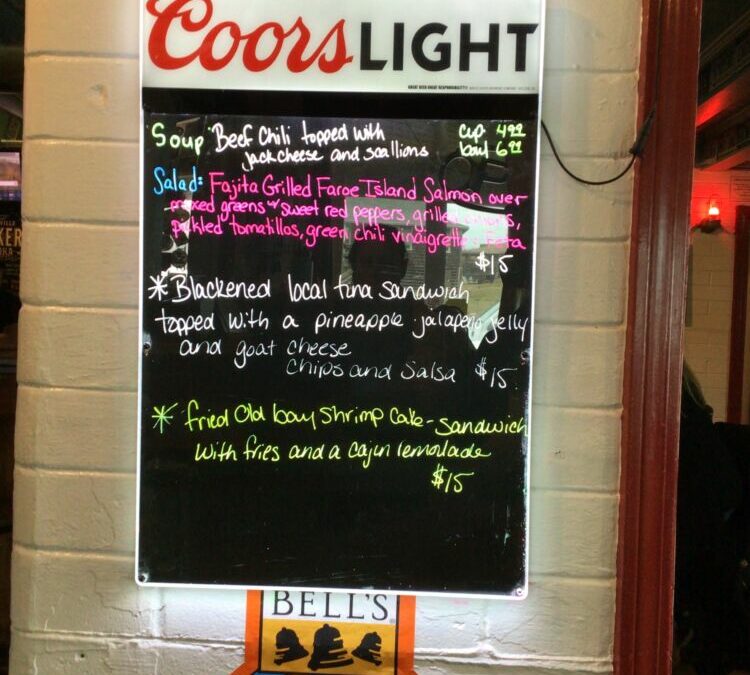 Coors LIGHT
GREAT BEER GREAT RESPONSIBILITY®
Soup Beef Chili topped with cup 4.99
jack cheese and scallions bowl 6.99
Salad: Fajita Grilled Faroe Island Salmon over
mixed greens sweet red peppers, grilled onions,
pickled tomatillos, green chili vinaigrette, Feta
$15
* Blackened local tuna sandwich
topped with a pineapple jalapeno jelly
and goat cheese
chips and salsa $15
* fried Old bay Shrimp Cake-sandwich
with fries and a cajun lemonlade
$15
BELL'S